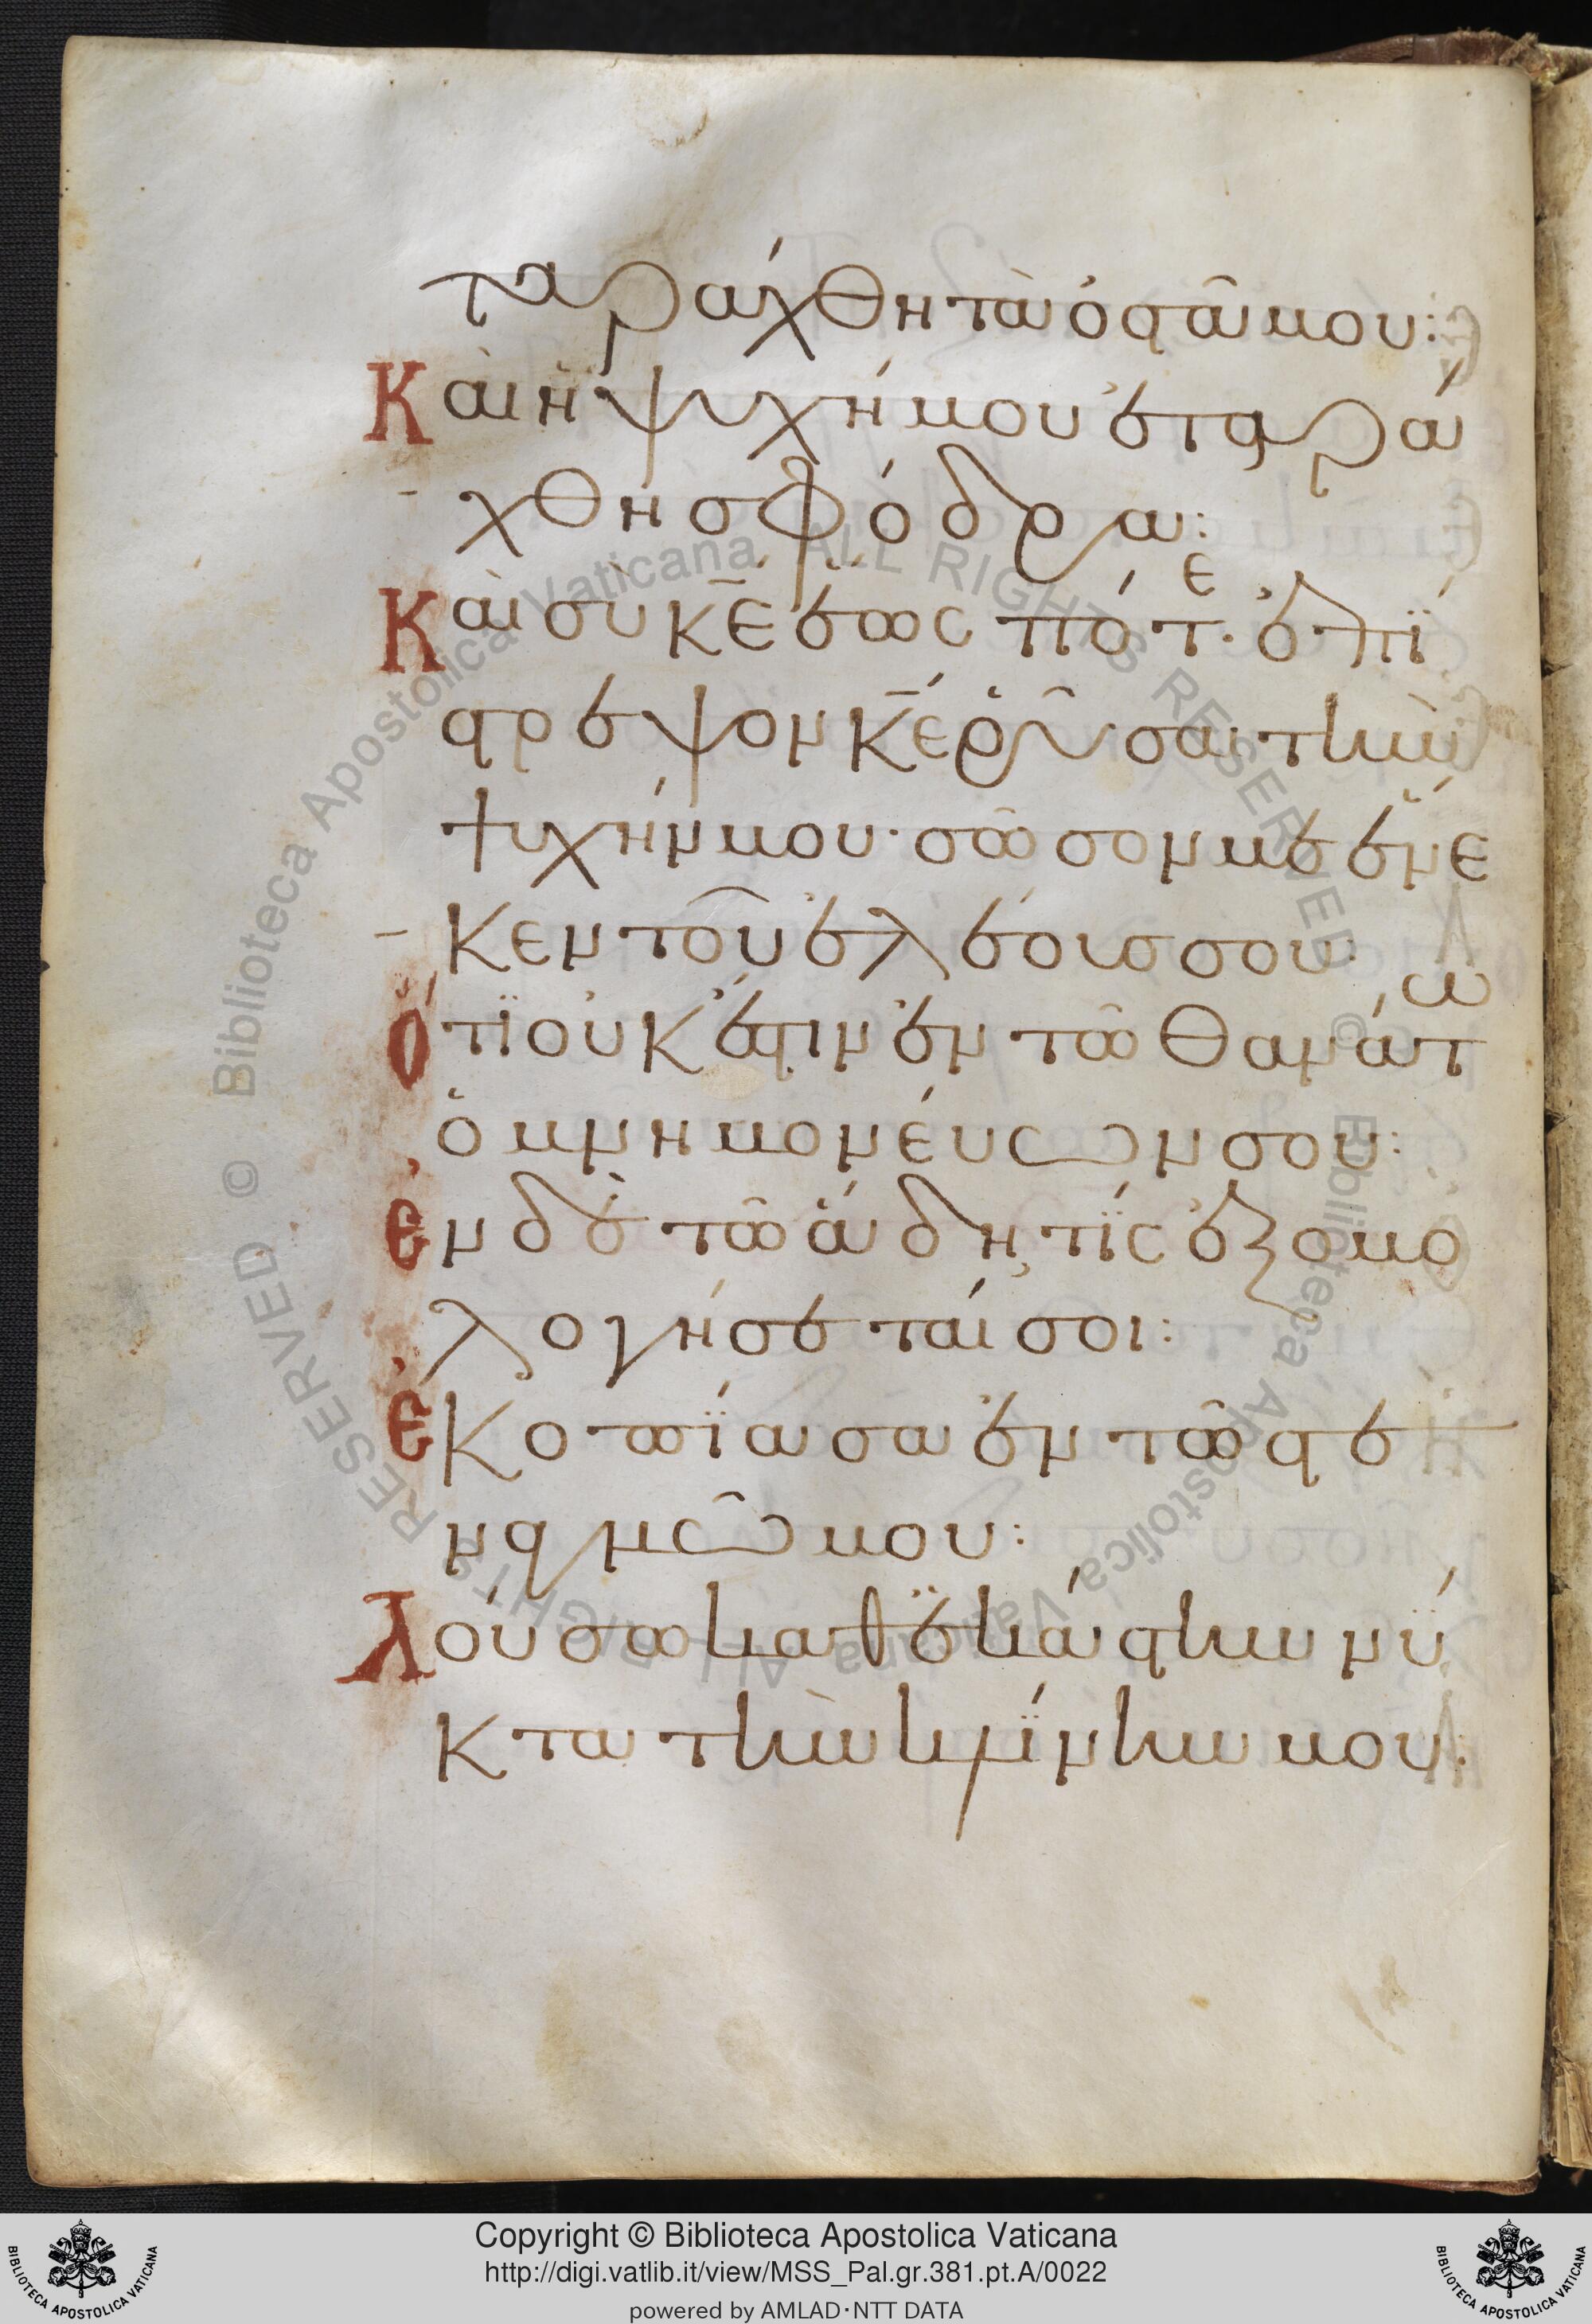 ταράχθη τὰ ὀστᾶ μου:
Καὶ ἡ ψυχή μου ἐταρά
χθη σφόδρα:
Καὶ σὺ κ̅ε̅ ἕως πότε· ἐπί
στρεψον κ̅ε̅ ῥῦσαι τὴν
ψυχήν μου· σῶσον με ἕνε
κεν τοῦ ἐλέους σου:
Ὅτι οὐκ ἔστιν ἐν τῶ θανάτω
ὁ μνημονεύων σου:
Ἐν δὲ τῶ ἅδη τίς ἐξομο
λογήσεταί σοι:
Ἐκοπίασα ἐν τῶ στε
ναγμῶ μου:
Λούσω καθ' ἑκάστην νύ
κτα τὴν κλίνην μου:
Copyright © Biblioteca Apostolica Vaticana
http://digi.vatlib.it/view/MSS_Pal.gr.381.pt.A/0022
powered by AMLAD·NTT DATA
BIBLIOTECA APOSTOLICA VATICANA
BIBLIOTECA APOSTOLICA VATICANA
Biblioteca Apostolica Vaticana ALL RIGHTS RESERVED ©
Biblioteca Apostolica Vaticana ALL RIGHTS RESERVED ©